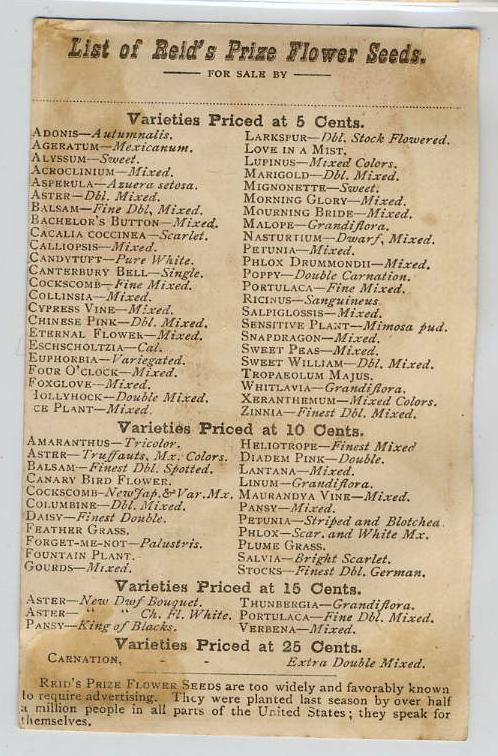 List of Reid's Prize Flower Seeds.
FOR SALE BY
Varieties Priced at 5 Cents.
ADONIS—Autumnalis.
AGERATUM—Mexicanum.
ALYSSUM—Sweet.
ACROCLINIUM—Mixed.
ASPERULA—Azuera setosa.
ASTER—Dbl. Mixed.
BALSAM—Fine Dbl, Mixed.
BACHELOR'S BUTTON—Mixed.
CACALIA COCCINEA—Scarlet.
CALLIOPSIS—Mixed.
CANDYTUFT—Pure White.
CANTERBURY BELL—Single.
COCKSCOMB—Fine Mixed.
COLLINSIA—Mixed.
CYPRESS VINE—Mixed.
CHINESE PINK—Dbl. Mixed.
ETERNAL FLOWER—Mixed.
ESCHSCHOLTZIA—Cal.
EUPHORBIA—Variegated.
FOUR O'CLOCK—Mixed.
FOXGLOVE—Mixed.
HOLLYHOCK—Double Mixed.
CE PLANT—Mixed.
LARKSPUR—Dbl. Stock Flowered.
LOVE IN A MIST.
LUPINUS—Mixed Colors.
MARIGOLD—Dbl. Mixed.
MIGNONETTE—Sweet.
MORNING GLORY—Mixed.
MOURNING BRIDE—Mixed.
MALOPE—Grandiflora.
NASTURTIUM—Dwarf, Mixed.
PETUNIA—Mixed.
PHLOX DRUMMONDII—Mixed.
POPPY—Double Carnation.
PORTULACA—Fine Mixed.
RICINUS—Sanguineus
SALPIGLOSSIS—Mixed.
SENSITIVE PLANT—Mimosa pud.
SNAPDRAGON—Mixed.
SWEET PEAS—Mixed.
SWEET WILLIAM—Dbl. Mixed.
TROPAEOLUM MAJUS.
WHITLAVIA—Grandiflora.
XERANTHEMUM—Mixed Colors.
ZINNIA—Finest Dbl. Mixed.
Varieties Priced at 10 Cents.
AMARANTHUS—Tricolor.
ASTER—Truffauts, Mx. Colors.
BALSAM—Finest Dbl. Spotted.
CANARY BIRD FLOWER.
COCKSCOMB—New Jap. & Var. Mx.
COLUMBINE—Dbl. Mixed.
DAISY—Finest Double.
FEATHER GRASS.
FORGET-ME-NOT—Palustris.
FOUNTAIN PLANT.
GOURDS—Mixed.
HELIOTROPE—Finest Mixed
DIADEM PINK—Double.
LANTANA—Mixed.
LINUM—Grandiflora.
MAURANDYA VINE—Mixed.
PANSY—Mixed.
PETUNIA—Striped and Blotched.
PHLOX—Scar. and White Mx.
PLUME GRASS.
SALVIA—Bright Scarlet.
STOCKS—Finest Dbl. German.
Varieties Priced at 15 Cents.
ASTER—New Dwf Bouquet.
ASTER— " " Ch. Fl. White.
PANSY—King of Blacks.
THUNBERGIA—Grandiflora.
PORTULACA—Fine Dbl. Mixed.
VERBENA—Mixed.
Varieties Priced at 25 Cents.
CARNATION, - - Extra Double Mixed.
REID'S PRIZE FLOWER SEEDS are too widely and favorably known
to require advertising. They were planted last season by over half
a million people in all parts of the United States; they speak for
themselves.